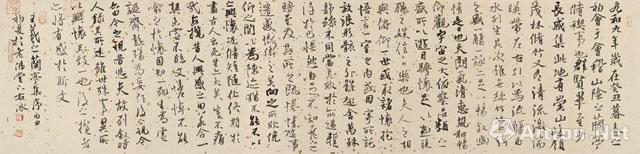 永和九年歲在癸丑暮春之
初會于會稽山陰之蘭亭
脩稧事也群賢畢至少
長咸集此地有崇山峻領
茂林脩竹又有清流激湍
映帶左右引以為流觴曲
水列坐其次雖無絲竹管弦
之盛一觴一詠亦足以暢敘幽
情是日也天朗氣清惠風和暢
仰觀宇宙之大俯察品類之
盛所以遊目騁懷足以極視
聽之娛信可樂也夫人之相
與俯仰一世或取諸懷抱
悟言一室之內或因寄所託
放浪形骸之外雖趣舍萬殊
靜躁不同當其欣於所遇暫
得於己快然自足不知老之
將至及其所之既惓情隨事
遷感慨係之矣向之所欣俛
仰之間以為陳迹猶不能不以
之興懷況脩短隨化終期於
盡古人云死生亦大矣豈不痛
哉每攬昔人興感之由若合一
契未嘗不臨文嗟悼不能
喻之於懷固知一死生為虛
誕齊彭殤為妄作後之視今
亦由今之視昔悲夫故列敘時
人錄其所述雖世殊事異所
以興懷其致一也後之攬者
亦將有感於斯文
王羲之蘭亭集序
Artron.Net